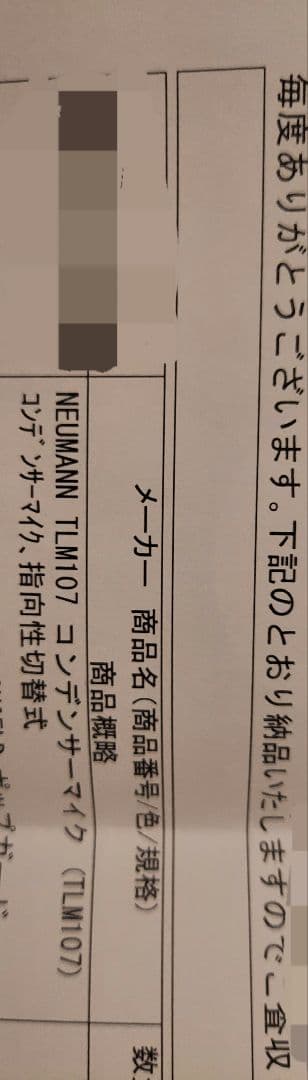 毎度ありがとうございます。下記のとおり納品いたしますのでご査収
メーカー 商品名(商品番号/色/規格)
数
商品概略
NEUMANN TLM107 コンデンサーマイク (TLM107)
ｺﾝﾃﾞﾝｻｰﾏｲｸ、指向性切替式
ポップガード